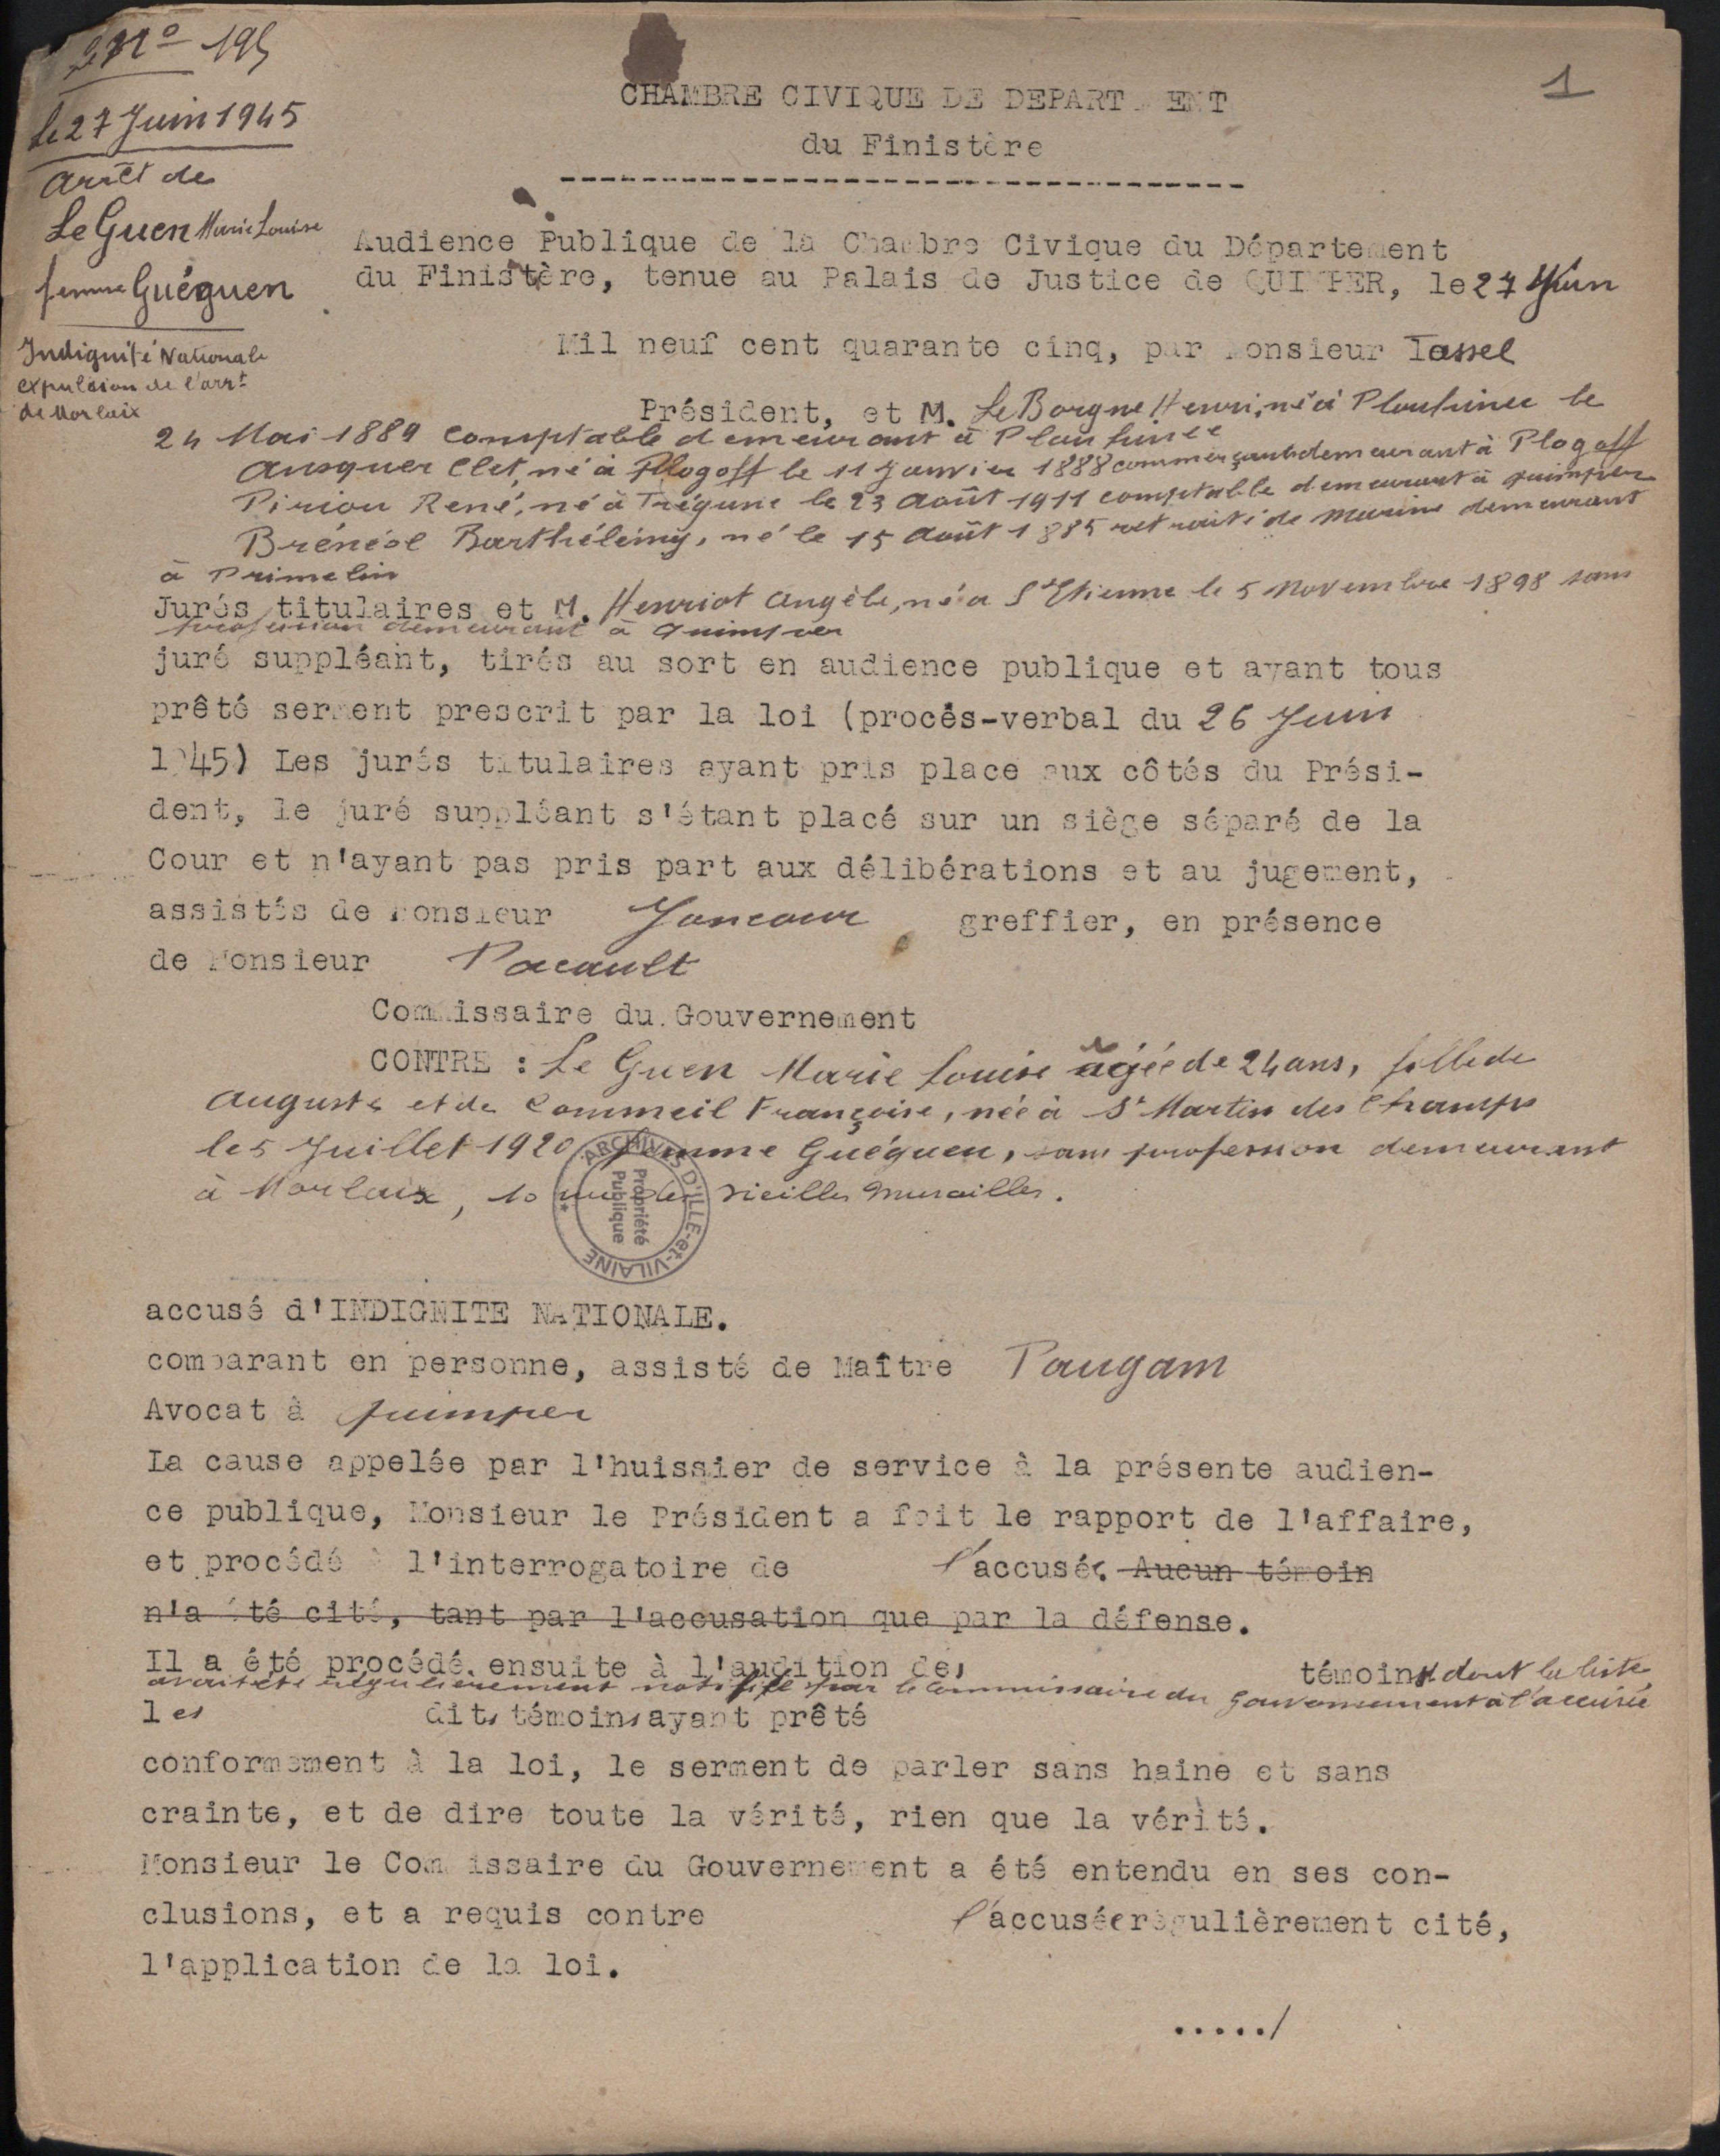 N° 195
le 27 Juin 1945
arrêt de
Le Guen Marie Louise
femme Guéguen
Indignité Nationale
expulsion de l'arrt
de Morlaix
1
CHAMBRE CIVIQUE DE DEPARTEMENT
du Finistère
Audience Publique de la Chambre Civique du Département
du Finistère, tenue au Palais de Justice de QUIMPER, le 27 Juin
Mil neuf cent quarante cinq, par Monsieur Tassel
Président, et M. Le Borgne Henri, né à Plouhinec le
24 Mai 1889 comptable demeurant à Plouhinec
Ansquer Clet, né à Plogoff le 11 Janvier 1888 commerçant demeurant à Plogoff
Piriou René, né à Trégunc le 23 Août 1911 comptable demeurant à Quimper
Brénéol Barthélémy, né le 15 Août 1885 retraité de marine demeurant
à Primelin
Jurés titulaires et M. Henriot Angèle, né à St Etienne le 5 Novembre 1898 sans
profession demeurant à Quimper
juré suppléant, tirés au sort en audience publique et ayant tous
prêté serment prescrit par la loi (procès-verbal du 26 Juin
1945) Les jurés titulaires ayant pris place aux côtés du Prési-
dent, le juré suppléant s'étant placé sur un siège séparé de la
Cour et n'ayant pas pris part aux délibérations et au jugement,
assistés de Monsieur Joncour greffier, en présence
de Monsieur Pacault
Commissaire du Gouvernement
CONTRE : Le Guen Marie Louise agée de 24 ans, fille de
Auguste et de Commeil Françoise, née à St Martin des Champs
le 5 Juillet 1920 femme Guéguen, sans profession demeurant
à Morlaix, 10 rue des vieilles murailles.
ARCHIVES D'ILLE-et-VILAINE
Propriété
Publique
accusé d'INDIGNITE NATIONALE.
comparant en personne, assisté de Maître Paugam
Avocat à Quimper
La cause appelée par l'huissier de service à la présente audien-
ce publique, Monsieur le Président a fait le rapport de l'affaire,
et procédé à l'interrogatoire de l'accusée. Aucun témoin
n'a été cité, tant par l'accusation que par la défense.
Il a été procédé ensuite à l'audition des témoins dont la liste
avait été régulièrement notifiée par le Commissaire du Gouvernement à l'accusée
les dits témoins ayant prêté
conformement à la loi, le serment de parler sans haine et sans
crainte, et de dire toute la vérité, rien que la vérité.
Monsieur le Commissaire du Gouvernement a été entendu en ses con-
clusions, et a requis contre l'accusée régulièrement cité,
l'application de la loi.
...../